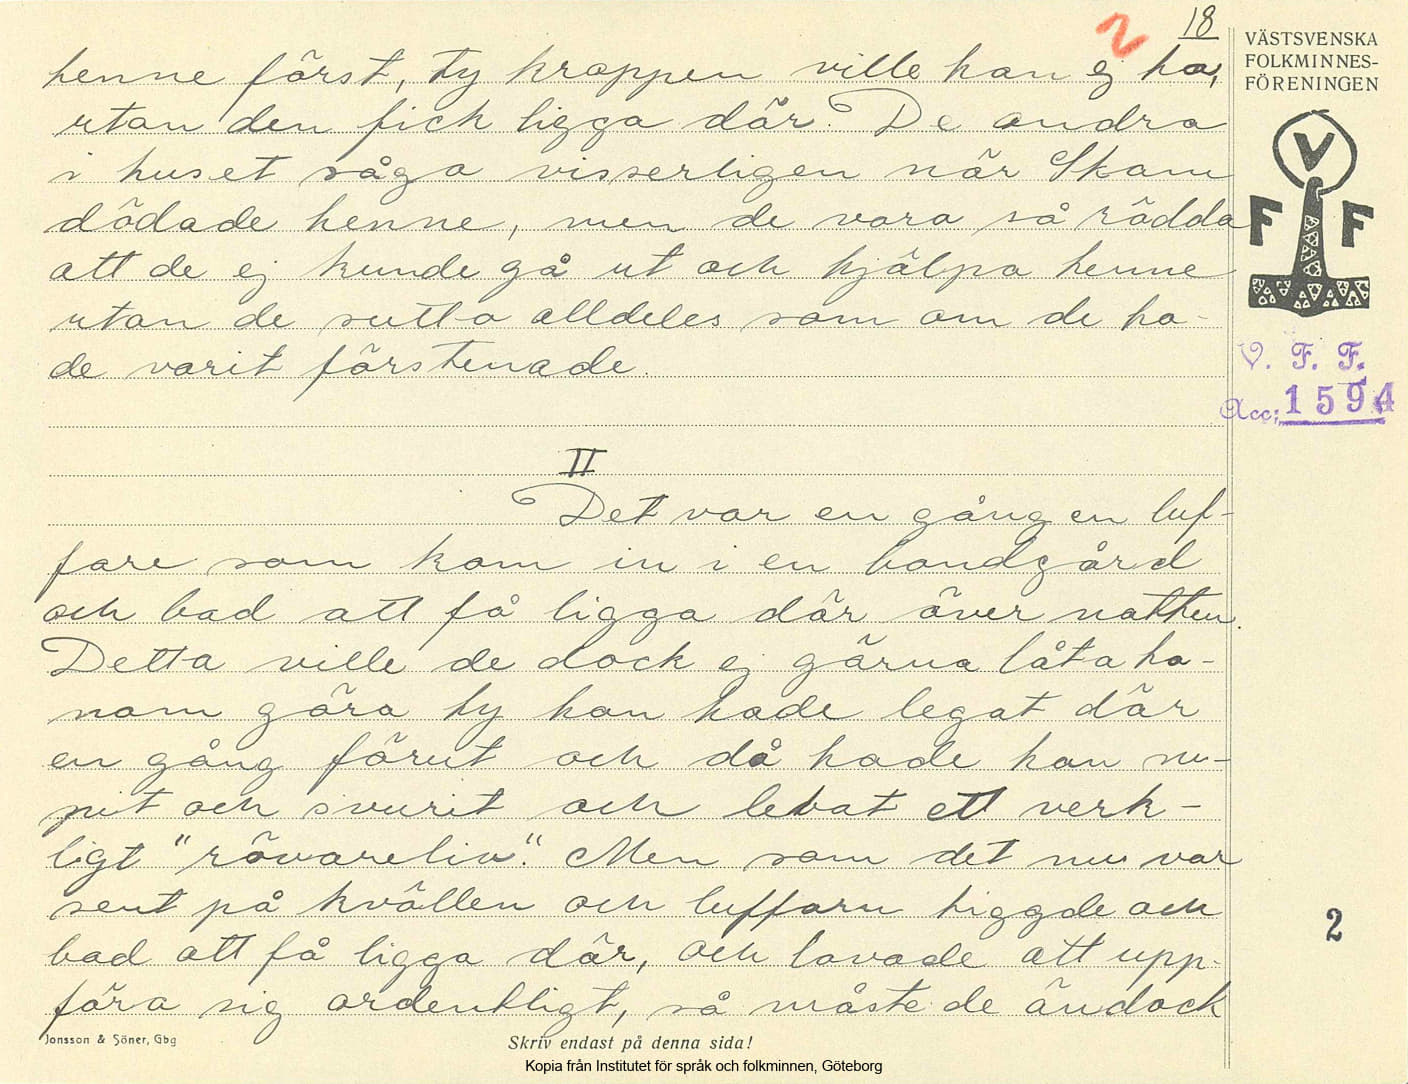 18
2
henne först, ty kroppen ville han ej ha,
utan den fick ligga där. De andra
i huset sågo visserligen när Skam
dödade henne, men de voro så rädda
att de ej kunde gå ut och hjälpa henne
utan de sutto alldeles som om de ha-
de varit förstenade.
II
Det var en gång en luf-
fare som kom in i en bondgård
och bad att få ligga där över natten.
Detta ville de dock ej gärna låta ho-
nom göra ty han hade legat där
en gång förut och då hade han su-
pit och svurit och levat ett verk-
ligt "rövareliv". Men som det nu var
sent på kvällen och luffarn tiggde och
bad att få ligga där, och lovade att upp-
föra sig ordentligt, så måste de ändock
VÄSTSVENSKA
FOLKMINNES-
FÖRENINGEN
V
F F
V. F. F.
Acc; 1594
2
Jonsson & Söner, Gbg
Skriv endast på denna sida!
Kopia från Institutet för språk och folkminnen, Göteborg